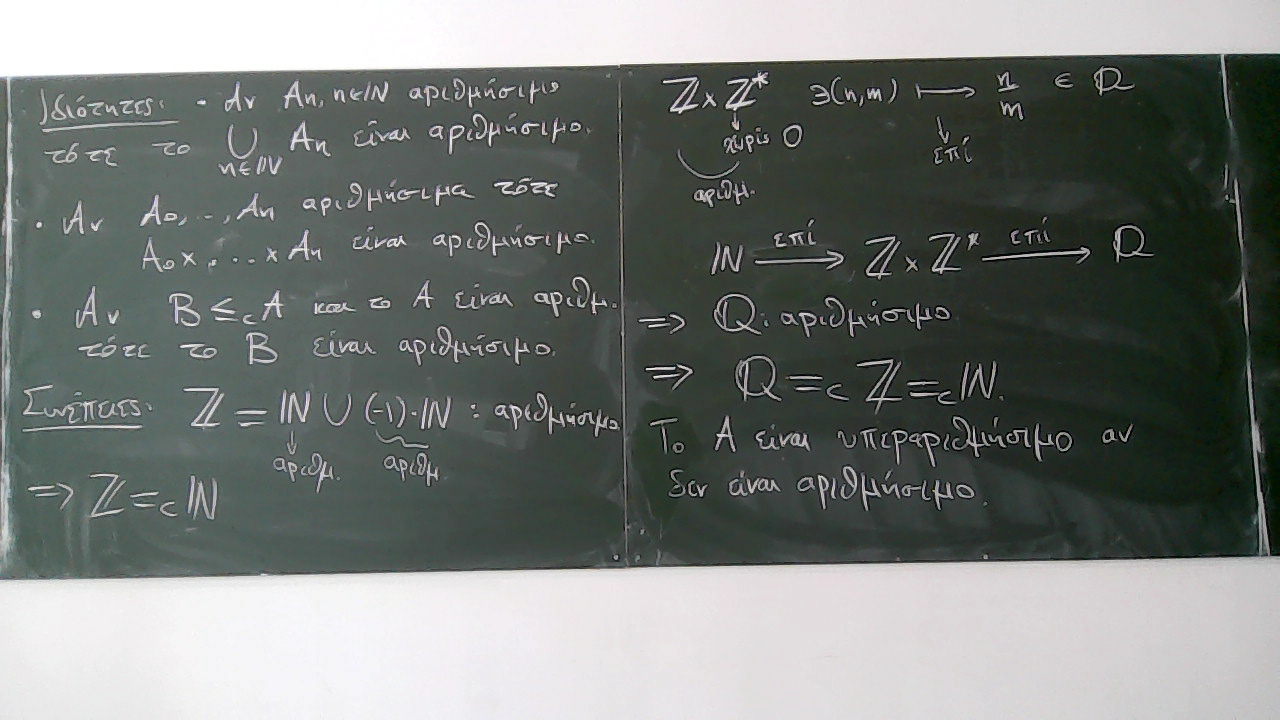 Ιδιότητες: • Αν Αn, n∈ℕ αριθμήσιμο
τότε το ⋃ Αn είναι αριθμήσιμο.
n∈ℕ
• Αν A₀,..,Aₙ αριθμήσιμα τότε
A₀×,...×Aₙ είναι αριθμήσιμο.
• Αν B ≤c A και το A είναι αριθμ.
τότε το B είναι αριθμήσιμο.
Συνέπειες: ℤ = ℕ ∪ (-1)·ℕ : αριθμήσιμο
αριθμ. αριθμ.
⇒ ℤ =c ℕ
ℤ × ℤ* ∋ (n,m) ⟼ n/m ∈ ℚ
↓ χωρίς 0 ↓ επί
αριθμ.
ℕ —επί→ ℤ × ℤ* —επί→ ℚ
⇒ ℚ: αριθμήσιμο.
⇒ ℚ =c ℤ =c ℕ.
Το A είναι υπεραριθμήσιμο αν
δεν είναι αριθμήσιμο.